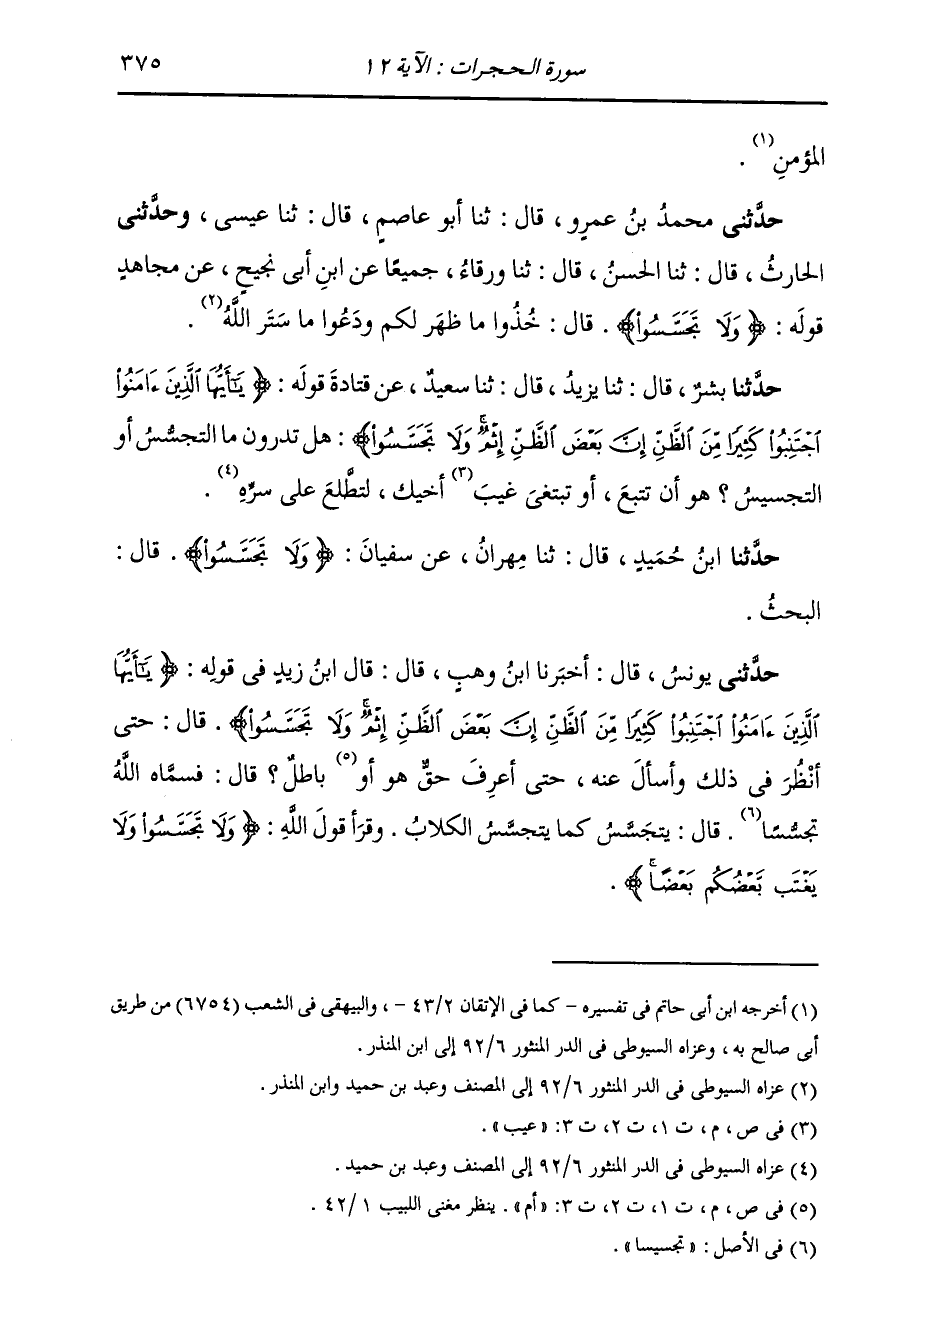 سورة الحجرات : الآية ١٢ ٣٧٥
المؤمنِ(١) .
حدَّثنى محمدُ بنُ عمرٍو ، قال : ثنا أبو عاصمٍ ، قال : ثنا عيسى ، وحدَّثنى
الحارثُ ، قال : ثنا الحسنُ ، قال : ثنا ورقاءُ ، جميعًا عن ابنِ أبى نجيحٍ ، عن مجاهدٍ
قولَه : ﴿ وَلَا تَجَسَّسُوا۟﴾ . قال : خُذُوا ما ظهَر لكم ودَعُوا ما ستَر اللَّهُ(٢) .
حدَّثنا بشرٌ ، قال : ثنا يزيدُ ، قال : ثنا سعيدٌ ، عن قتادةَ قولَه : ﴿ يَٰٓأَيُّهَا ٱلَّذِينَ ءَامَنُوا۟
ٱجْتَنِبُوا۟ كَثِيرًا مِّنَ ٱلظَّنِّ إِنَّ بَعْضَ ٱلظَّنِّ إِثْمٌ ۖ وَلَا تَجَسَّسُوا۟﴾ : هل تدرون ما التجسُّسُ أو
التجسيسُ ؟ هو أن تتبعَ ، أو تبتغىَ غيبَ(٣) أخيك ، لتطَّلعَ على سرِّه(٤) .
حدَّثنا ابنُ حُمَيدٍ ، قال : ثنا مِهرانُ ، عن سفيانَ : ﴿ وَلَا تَجَسَّسُوا۟﴾ . قال :
البحثُ .
حدَّثنى يونسُ ، قال : أخبَرنا ابنُ وهبٍ ، قال : قال ابنُ زيدٍ فى قولِه : ﴿ يَٰٓأَيُّهَا
ٱلَّذِينَ ءَامَنُوا۟ ٱجْتَنِبُوا۟ كَثِيرًا مِّنَ ٱلظَّنِّ إِنَّ بَعْضَ ٱلظَّنِّ إِثْمٌ ۖ وَلَا تَجَسَّسُوا۟﴾ . قال : حتى
أنْظُرَ فى ذلك وأسألَ عنه ، حتى أعرِفَ حقٌّ هو أو(٥) باطلٌ ؟ قال : فسمَّاه اللَّهُ
تجسُّسًا(٦) . قال : يتجَسَّسُ كما يتجسَّسُ الكلابُ . وقرَأ قولَ اللَّهِ : ﴿ وَلَا تَجَسَّسُوا۟ وَلَا
يَغْتَب بَّعْضُكُم بَعْضًا ۚ﴾ .
(١) أخرجه ابن أبى حاتم فى تفسيره – كما فى الإتقان ٤٣/٢ – ، والبيهقى فى الشعب (٦٧٥٤) من طريق
أبى صالح به ، وعزاه السيوطى فى الدر المنثور ٩٢/٦ إلى ابن المنذر .
(٢) عزاه السيوطى فى الدر المنثور ٩٢/٦ إلى المصنف وعبد بن حميد وابن المنذر .
(٣) فى ص ، م ، ت ١، ت ٢، ت ٣: «عيب» .
(٤) عزاه السيوطى فى الدر المنثور ٩٢/٦ إلى المصنف وعبد بن حميد .
(٥) فى ص ، م ، ت ١، ت ٢، ت ٣: «أم» . ينظر مغنى اللبيب ٤٢/١ .
(٦) فى الأصل : « تجسيسا» .